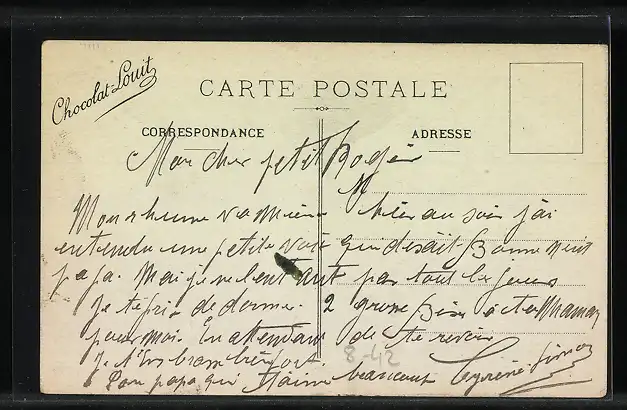 Chocolat-Louit
CARTE POSTALE
CORRESPONDANCE
ADRESSE
Mon cher petit Roger
M
Mon rhume va mieux hier au soir j'ai
entendu une petite voix qui disait Bonne nuit
papa. Mais je ne l'entend pas tout les jours
Je te prie de donner 2 grosse Bise a ta Maman
pour moi. En attendant de te revoir
Je t'Embrasse bien fort.
Ton papa qui t'aime beaucoup Simon
8-42